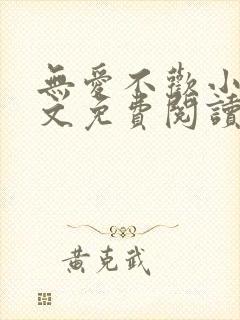 無愛不歡小
文免費閱讀
黃克武